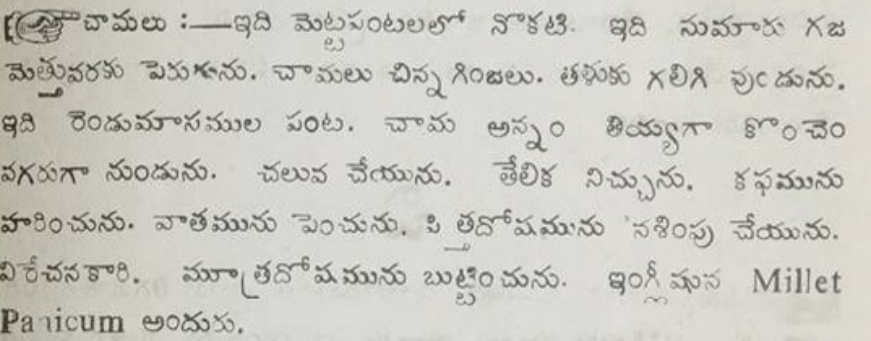 ☞ చామలు :—ఇది మెట్టపంటలలో నొకటి. ఇది సుమారు గజ
మెత్తువరకు పెరుగును. చామలు చిన్న గింజలు. తళుకు గలిగి వుండును.
ఇది రెండుమాసముల పంట. చామ అన్నం తియ్యగా కొంచెం
వగరుగా నుండును. చలువ చేయును. తేలిక నిచ్చును. కఫమును
హరించును. వాతమును పెంచును. పిత్తదోషమును నశింపు చేయును.
విరేచనకారి. మూత్రదోషమును బుట్టించును. ఇంగ్లీషున Millet
Panicum అందురు.